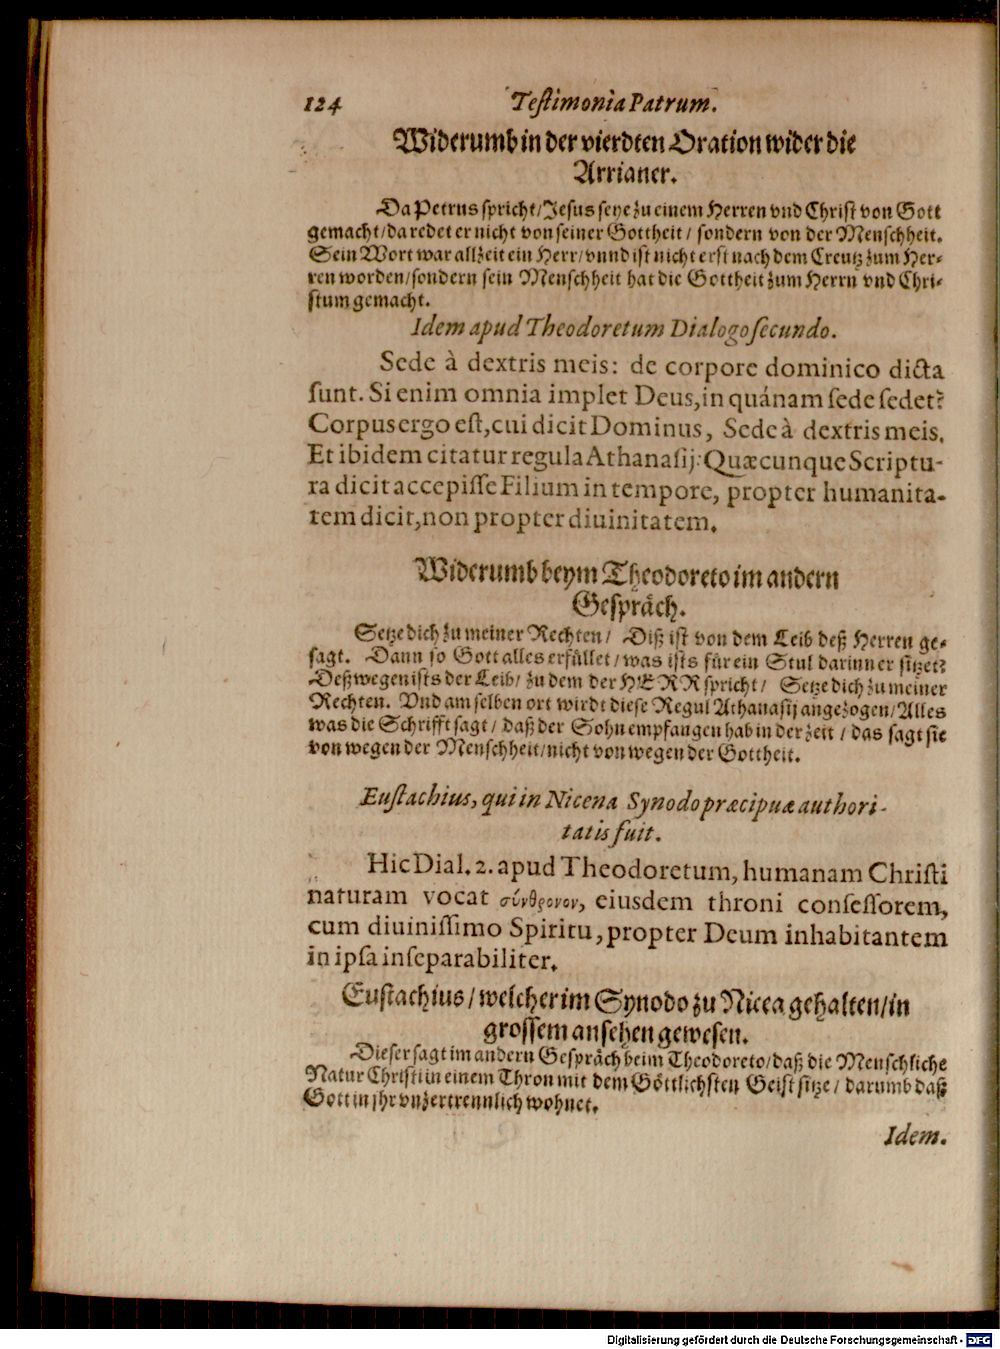 124 Testimonia Patrum.
Widerumb in der vierdten Oration wider die
Arrianer.
Da Petrus spricht/Jesus seye zu einem Herren vnd Christ von Gott
gemacht/da redet er nicht von seiner Gottheit/ sondern von der Menschheit.
Sein Wort war allzeit ein Herr/vnnd ist nicht erst nach dem Creutz zum Her-
ren worden/sondern sein Menschheit hat die Gottheit zum Herrn vnd Chri-
stum gemacht.
Idem apud Theodoretum Dialogo secundo.
Sede à dextris meis: de corpore dominico dicta
sunt. Si enim omnia implet Deus, in quánam sede sedet?
Corpus ergo est, cui dicit Dominus, Sede à dextris meis.
Et ibidem citatur regula Athanasij: Quæcunque Scriptu-
ra dicit accepisse Filium in tempore, propter humanita-
tem dicit, non propter diuinitatem.
Widerumb beym Theodoreto im andern
Gespräch.
Setze dich zu meiner Rechten/ Diß ist von dem Leib deß Herren ge-
sagt. Dann so Gott alles erfüllet/was ists für ein Stul darinn er sitzet?
Deßwegen ists der Leib/ zu dem der HERR spricht/ Setze dich zu meiner
Rechten. Vnd am selben ort wirdt diese Regul Athanasij angezogen/Alles
was die Schrifft sagt/ daß der Sohn empfangen hab in der zeit / das sagt sie
von wegen der Menschheit/nicht von wegen der Gottheit.
Eustachius, qui in Nicena Synodo præcipuæ authori-
tatis fuit.
Hic Dial. 2. apud Theodoretum, humanam Christi
naturam vocat σύνθρονον, eiusdem throni consessorem,
cum diuinissimo Spiritu, propter Deum inhabitantem
in ipsa inseparabiliter.
Eustachius/welcher im Synodo zu Nicea gehalten/in
grossem ansehen gewesen.
Dieser sagt im andern Gespräch beim Theodoreto/daß die Menschliche
Natur Christi in einem Thron mit dem Göttlichsten Geist sitze/ darumb daß
Gott in jhr vnzertrennlich wohnet.
Idem.
Digitalisierung gefördert durch die Deutsche Forschungsgemeinschaft - DFG